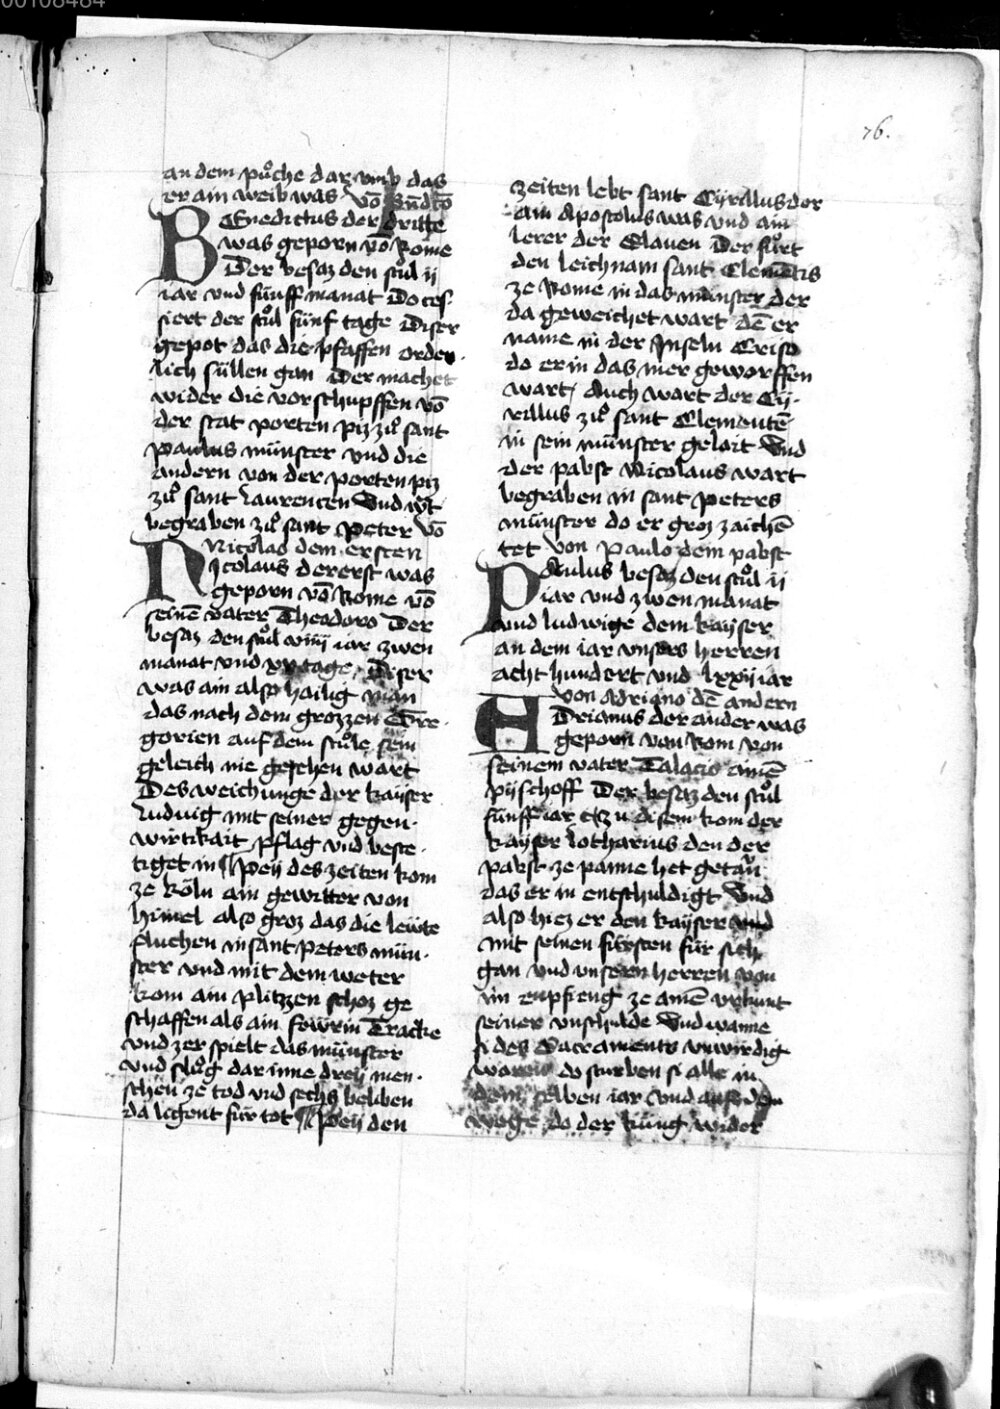 00108484
76.
an dem puͦche dar vmb das
er ain weib was vō Bn̄dcō
BEnedictus der dritte
was geporn vō Rome
Der besaz den stuͦl ij
iar vnd fünff manat Do ces
siert der stuͦl fünf tage Diser
gepot das die pfaffen orden
lich süllen gan Der machet
wider die vorschupffen vō
der stat porten piz zuͦ sant
Paulus münster vnd die
andern von der porten piz
zuͦ sant Laurencen Vnd ist
begraben zuͦ sant Peter vō
Nicolao dem ersten
NIcolaus der erst was
geporn vō Rome vō
seinē vater Theodoro Der
besaz den stuͦl viiij iar zwen
manat vnd tage Diser
was ain also hailig man
das nach dem grozzen Gre
gorien auf dem stuͦle sein
geleich nie gesehen wart
Des weichunge der kayser
Ludwig mit seiner gegen
würtikait pflag vnd beste
tiget in ¶ Pey des zeiten kom
ze Köln ain gewitter von
himel also groz das die lewte
fluchen in sant Peters mün
ster vnd mit dem weter
kom ain plitzzen schoz ge
schaffen als ain fewrin Tracke
vnd zerspielt das münster
vnd sluͦg dar inne drey men
schen ze tod vnd sechs beliben
da ligent für tot ¶ Pey den
zeiten lebt sant Cyrillus der
ain Apostolus was vnd ain
lerer der Slauen Der fuͦrt
den leichnam sant Clemētis
ze Rome in das münster der
da geweichet wart dē er
name in der Inseln Criso
do er in das mer geworffen
wart Auch wart der Cy
rillus zuͦ sant Clementē
in sein münster gelait Vnd
der pabst Nicolaus wart
begraben in sant Peters
münster do er groz zaichē
tet Von Paulo dem pabst
PAulus besaz den stuͦl ij
iar vnd zwen manat
vnd ludwige dem kayser
an dem iar vnsers herren
acht hundert vnd lxxij iar
von Adriano dē andern
ADrianus der ander was
geporn von Rom von
seinem vater Talacio ainē
pyschoff Der besaz den stuͦl
fünff iar Zu disem kom der
kayser Lotharius den der
pabst ze panne het getan
das er in entschuldigt Vnd
also hiez er den kayser vnd
mit seinen fürsten für sich
gan vnd vnseren herren von
im enpfieng ze ainē vrkunt
seiner vnschulde Vnd wanne
si des Sacraments vnwirdig
waren do sturben si alle in
dem selben iar Vnd auf dem
wege do der küng wider